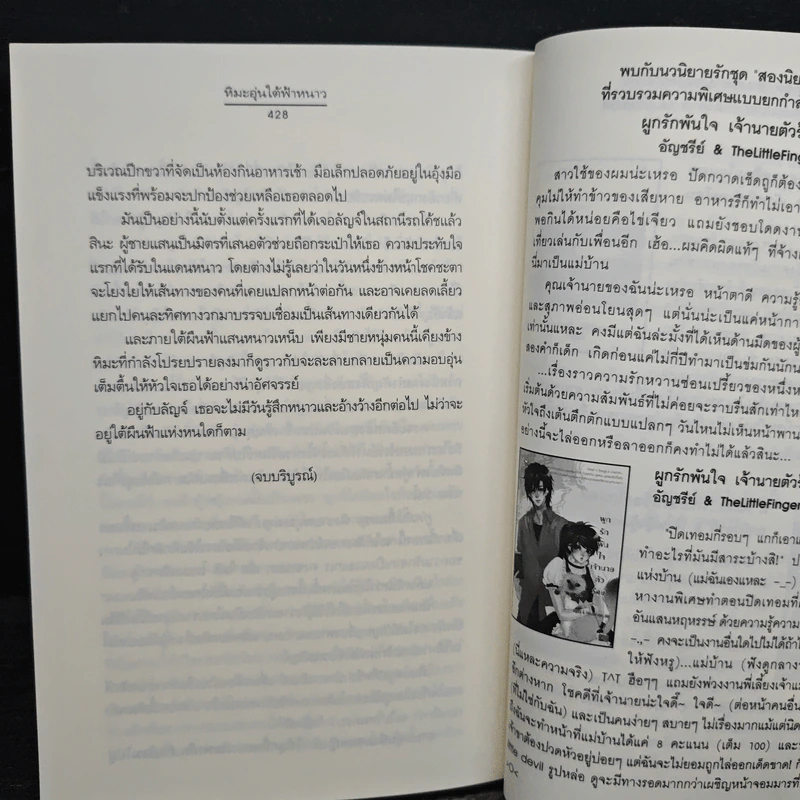 หิมะอุ่นใต้ฟ้าหนาว
428
บริเวณปีกขวาที่จัดเป็นห้องกินอาหารเช้า มือเล็กปลอดภัยอยู่ในอุ้งมือ
แข็งแรงที่พร้อมจะปกป้องช่วยเหลือเธอตลอดไป
มันเป็นอย่างนี้นับตั้งแต่ครั้งแรกที่ได้เจอลัญจ์ในสถานีรถโค้ชแล้ว
สินะ ผู้ชายแสนเป็นมิตรที่เสนอตัวช่วยถือกระเป๋าให้เธอ ความประทับใจ
แรกที่ได้รับในแดนหนาว โดยต่างไม่รู้เลยว่าในวันหนึ่งข้างหน้าโชคชะตา
จะโยงใยให้เส้นทางของคนที่เคยแปลกหน้าต่อกัน และอาจเคยลดเลี้ยว
แยกไปคนละทิศทางวกมาบรรจบเชื่อมเป็นเส้นทางเดียวกันได้
และภายใต้ผืนฟ้าแสนหนาวเหน็บ เพียงมีชายหนุ่มคนนี้เคียงข้าง
หิมะที่กำลังโปรยปรายลงมาก็ดูราวกับจะละลายกลายเป็นความอบอุ่น
เต็มตื้นให้หัวใจเธอได้อย่างน่าอัศจรรย์
อยู่กับลัญจ์ เธอจะไม่มีวันรู้สึกหนาวและอ้างว้างอีกต่อไป ไม่ว่าจะ
อยู่ใต้ผืนฟ้าแห่งหนใดก็ตาม
(จบบริบูรณ์)
พบกับนวนิยายรักชุด "สองนิย
ที่รวบรวมความพิเศษแบบยกกำล
ผูกรักพันใจ เจ้านายตัวร้
อัญชรีย์ & TheLittleFing
สาวใช้ของผมน่ะเหรอ ปัดกวาดเช็ดถูก็ต้อง
คุมไม่ให้ทำข้าวของเสียหาย อาหารรึก็ทำไม่เอา
พอกินได้หน่อยคือไข่เจียว แถมยังชอบโดดงาน
เที่ยวเล่นกับเพื่อนอีก เฮ้อ...ผมคิดผิดแท้ๆ ที่จ้าง
นี่มาเป็นแม่บ้าน
คุณเจ้านายของฉันน่ะเหรอ หน้าตาดี ความรู้
และสุภาพอ่อนโยนสุดๆ แต่นั่นน่ะเป็นแค่หน้ากา
เท่านั้นแหละ คงมีแต่ฉันล่ะมั้งที่ได้เห็นด้านมืดของผู้
สองคำก็เด็ก เกิดก่อนแค่ไม่กี่ปีทำมาเป็นข่มกันนักน
...เรื่องราวความรักหวานซ่อนเปรี้ยวของหนึ่งห
เริ่มต้นด้วยความสัมพันธ์ที่ไม่ค่อยจะราบรื่นสักเท่าไห
หัวใจถึงเต้นตึกตักแบบแปลกๆ วันไหนไม่เห็นหน้าพาน
อย่างนี้จะไล่ออกหรือลาออกก็คงทำไม่ได้แล้วสินะ...
ผูกรักพันใจ เจ้านายตัวร้
อัญชรีย์ & TheLittleFinger
ผูก
รัก
พัน
ใจ
เจ้านาย
ตัว
"ปิดเทอมกี่รอบๆ แกก็เอาแ
ทำอะไรที่มันมีสาระบ้างสิ!" ป
แห่งบ้าน (แม่ฉันเองแหละ -_-)
หางานพิเศษทำตอนปิดเทอมที่
อันแสนหฤหรรษ์ ด้วยความรู้ความ
-.,- คงจะเป็นงานอื่นใดไปไม่ได้ถ้าไ
ให้ฟังหรู)...แม่บ้าน (ฟังดูกลางๆ
(นี่แหละความจริง) T^T ฮือๆๆ แถมยังพ่วงงานพี่เลี้ยงเจ้าแม
อีกต่างหาก โชคดีที่เจ้านายน่ะใจดี๊~ ใจดี~ (ต่อหน้าคนอื่น
(ที่ไม่ใช่กับฉัน) และเป็นคนง่ายๆ สบายๆ ไม่เรื่องมากแม้แต่นิด
ถึงฉันจะทำหน้าที่แม่บ้านได้แค่ 8 คะแนน (เต็ม 100) และท
เจ้าขาต้องปวดหัวอยู่บ่อยๆ แต่ฉันจะไม่ยอมถูกไล่ออกเด็ดขาด! ก็
little devil รูปหล่อ ดูจะมีทางรอดมากกว่าเผชิญหน้าจอมมารที่